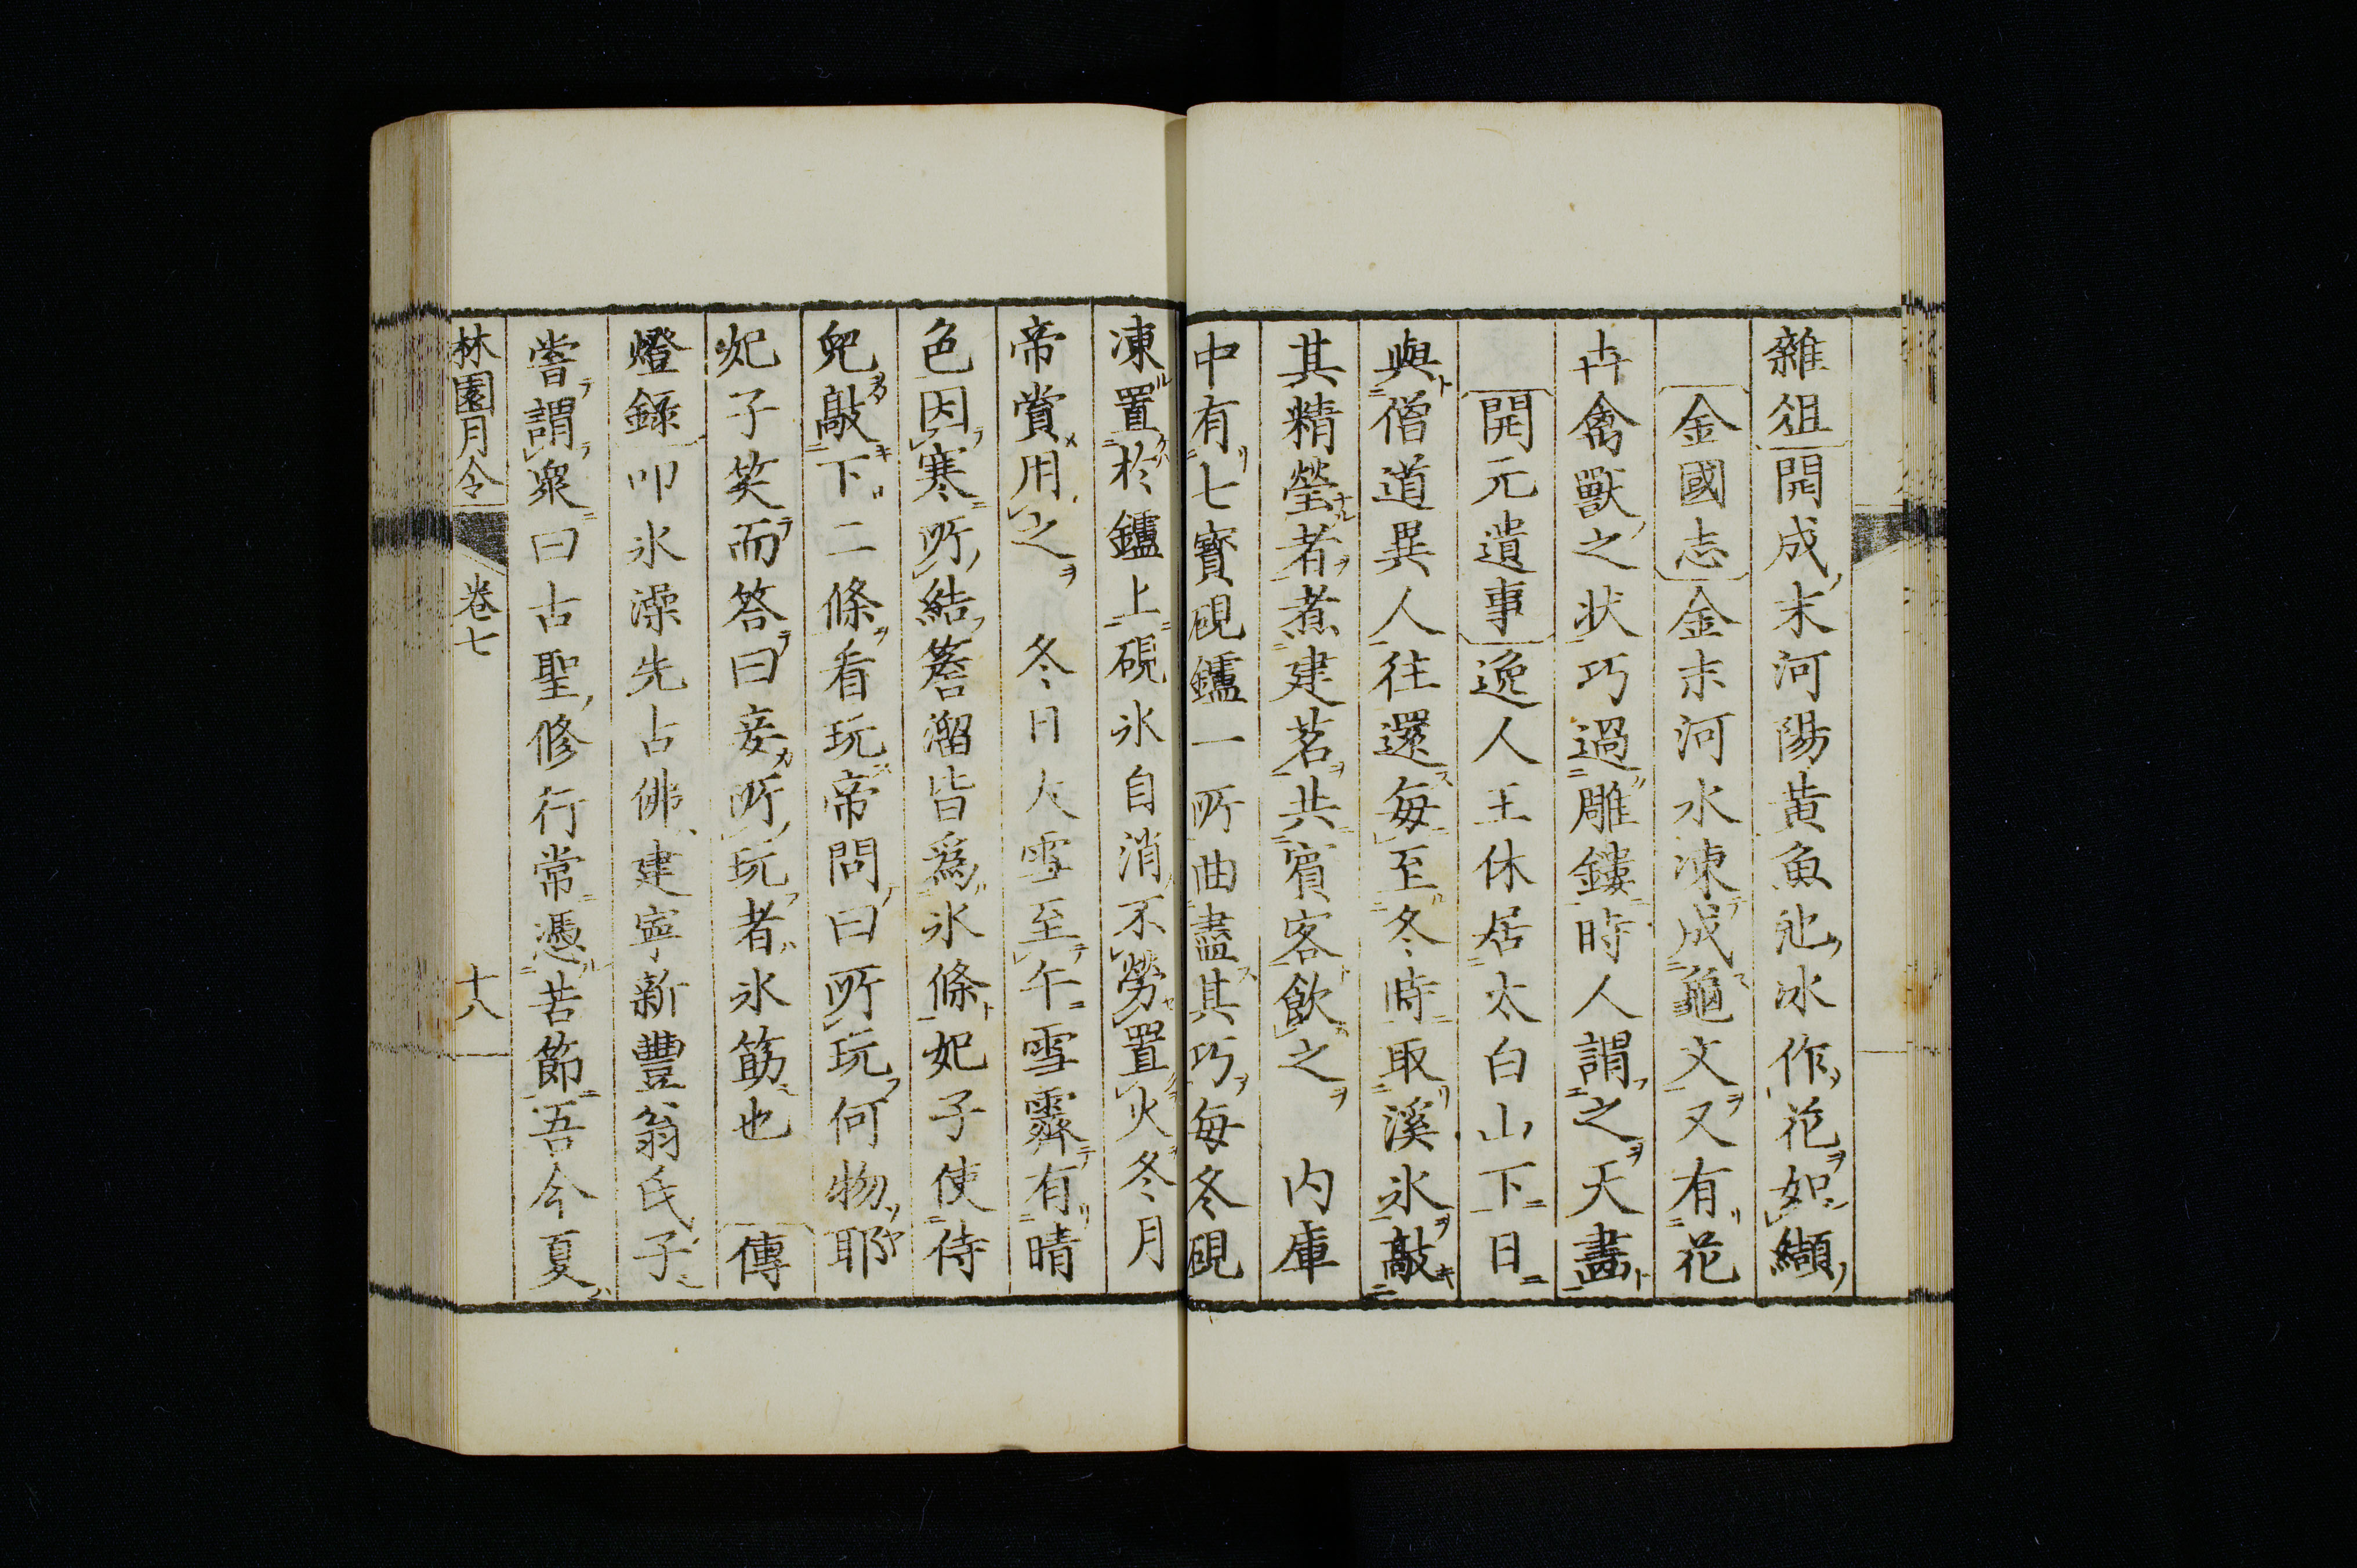 雜俎開成末河陽黃魚池冰作花如纈
金國志金末河水凍成龜文又有花
卉禽獸之狀巧過雕鏤時人謂之天畵
開元遺事逸人王休居太白山下日
與僧道異人往還每至冬時取溪氷敲
其精瑩者煮建茗共賓客飲之　内庫
中有七寶硯鑪一所曲盡其巧每冬硯
凍置於鑪上硯氷自消不勞置火冬月
帝賞用之　冬日大雪至午雪霽有晴
色因寒所結簷溜皆爲氷條妃子使侍
兒敲下二條看玩帝問曰所玩何物耶
妃子笑而答曰妾所玩者氷筯也　傳
燈録叩氷澡先古佛建寧新豐翁氏子
嘗謂衆曰古聖修行常憑苦節吾今夏
林園月令　卷七　十八